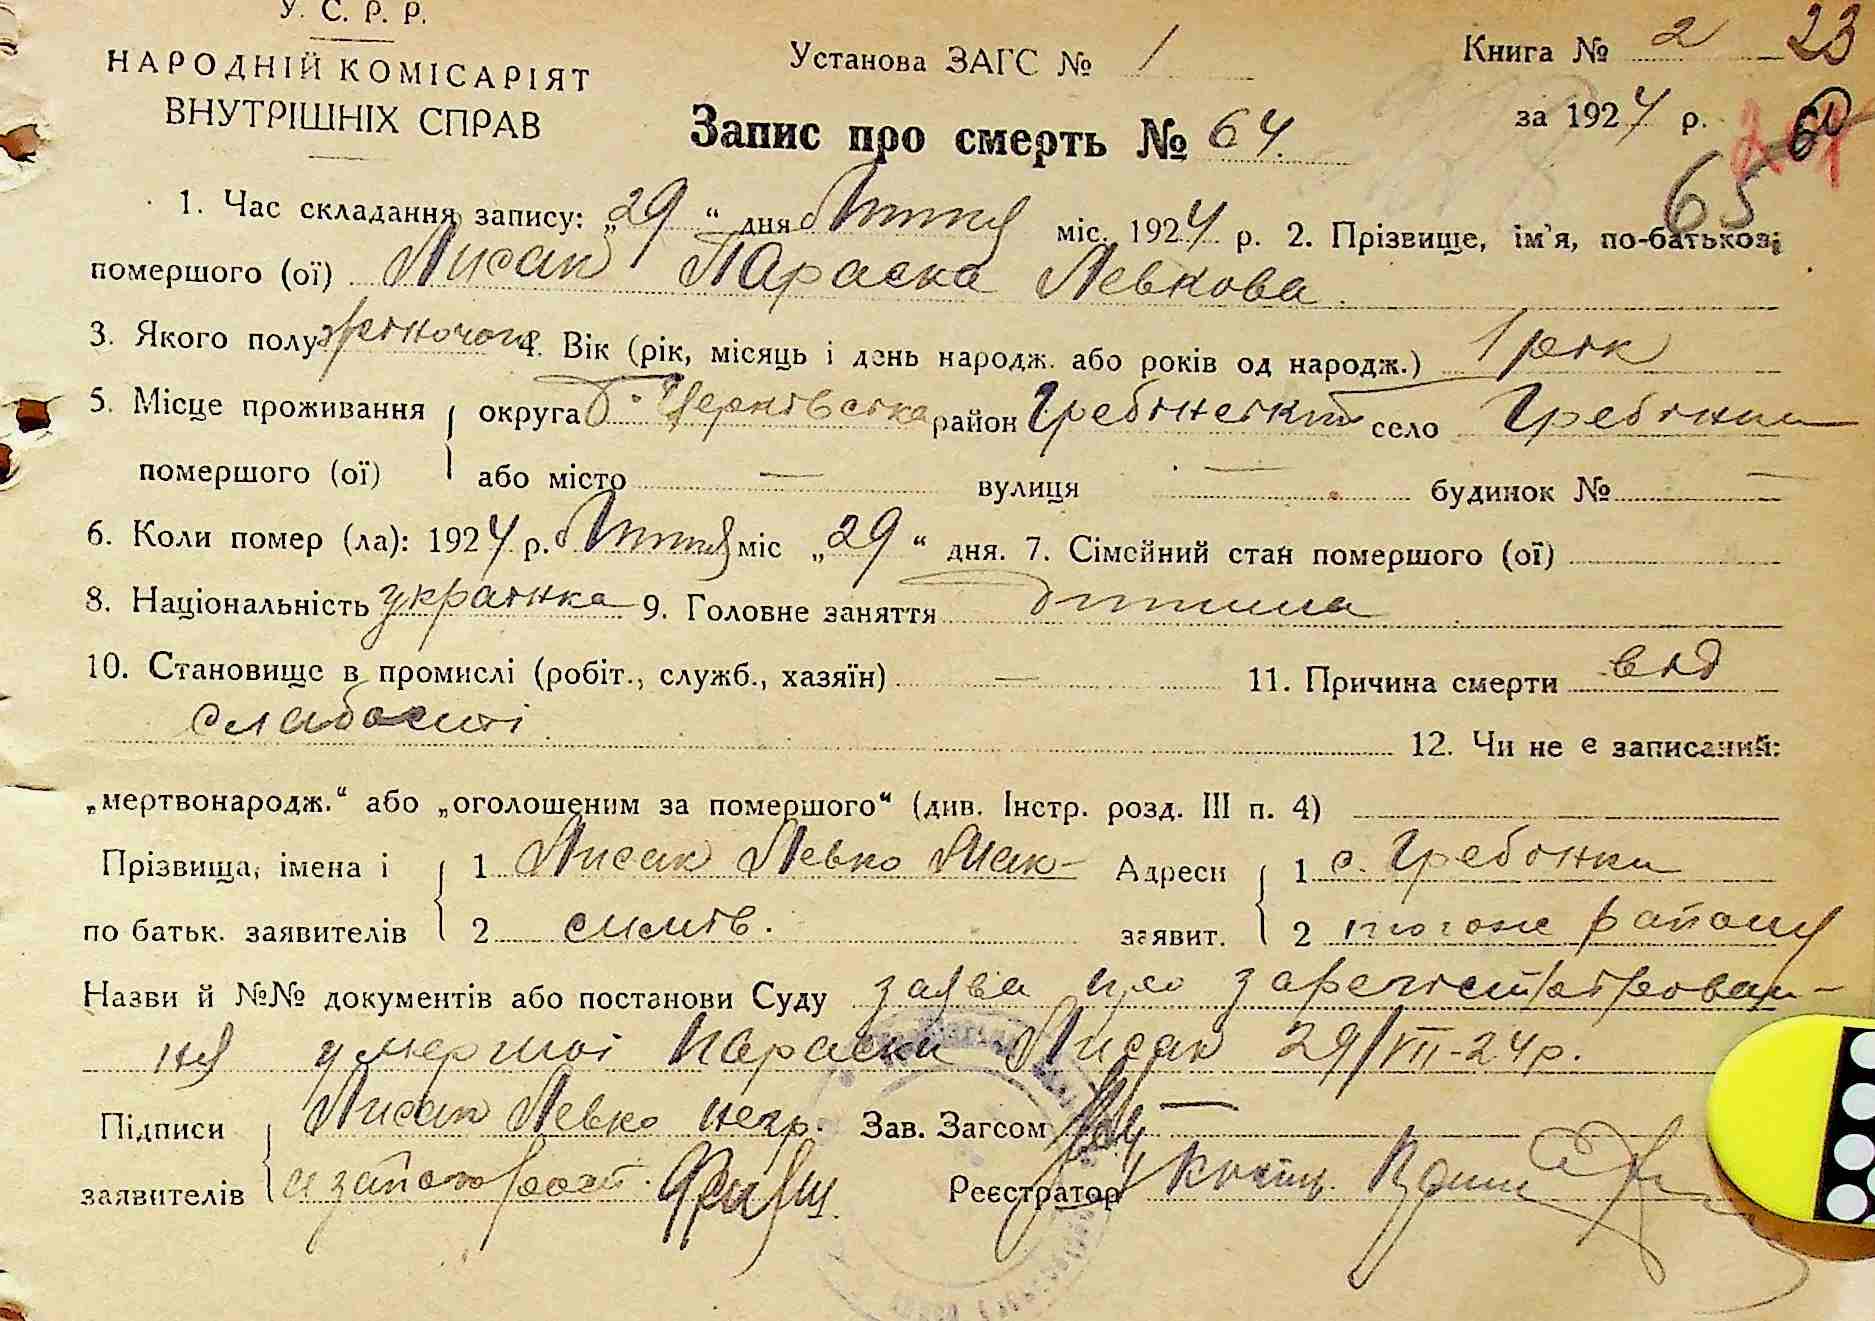 У. С. Р. Р.
НАРОДНІЙ КОМІСАРІЯТ
ВНУТРІШНІХ СПРАВ
Установа ЗАГС № 1
Книга № 2 23
за 1924 р. 60
Запис про смерть № 64.
65
1. Час складання запису: „29“ дня Липня міс. 1924 р. 2. Прізвище, ім’я, по-батькові
помершого (ої) Лисак Параска Левкова.
3. Якого полу жіночого 4. Вік (рік, місяць і день народж. або років од народж.) 1 рік
5. Місце проживання округа Б. Церківська район Гребінский село Гребінки
помершого (ої) або місто — вулиця — будинок № —
6. Коли помер (ла): 1924 р. Липня міс „29“ дня. 7. Сімейний стан помершого (ої)
8. Національність українка 9. Головне заняття дитина
10. Становище в промислі (робіт., служб., хазяїн) — 11. Причина смерти від
слабости
12. Чи не є записаний:
„мертвонародж.“ або „оголошеним за помершого“ (див. Інстр. розд. III п. 4)
Прізвища, імена і 1 Лисак Левко Мак- Адреси 1 с. Гребінки
по батьк. заявителів 2 симів. заявит. 2 того ж району
Назви й №№ документів або постанови Суду заява про зарегістрірован-
ня умершої Параски Лисак 29/VII-24р.
Підписи Лисак Левко негр. Зав. Загсом
заявителів Реєстратор